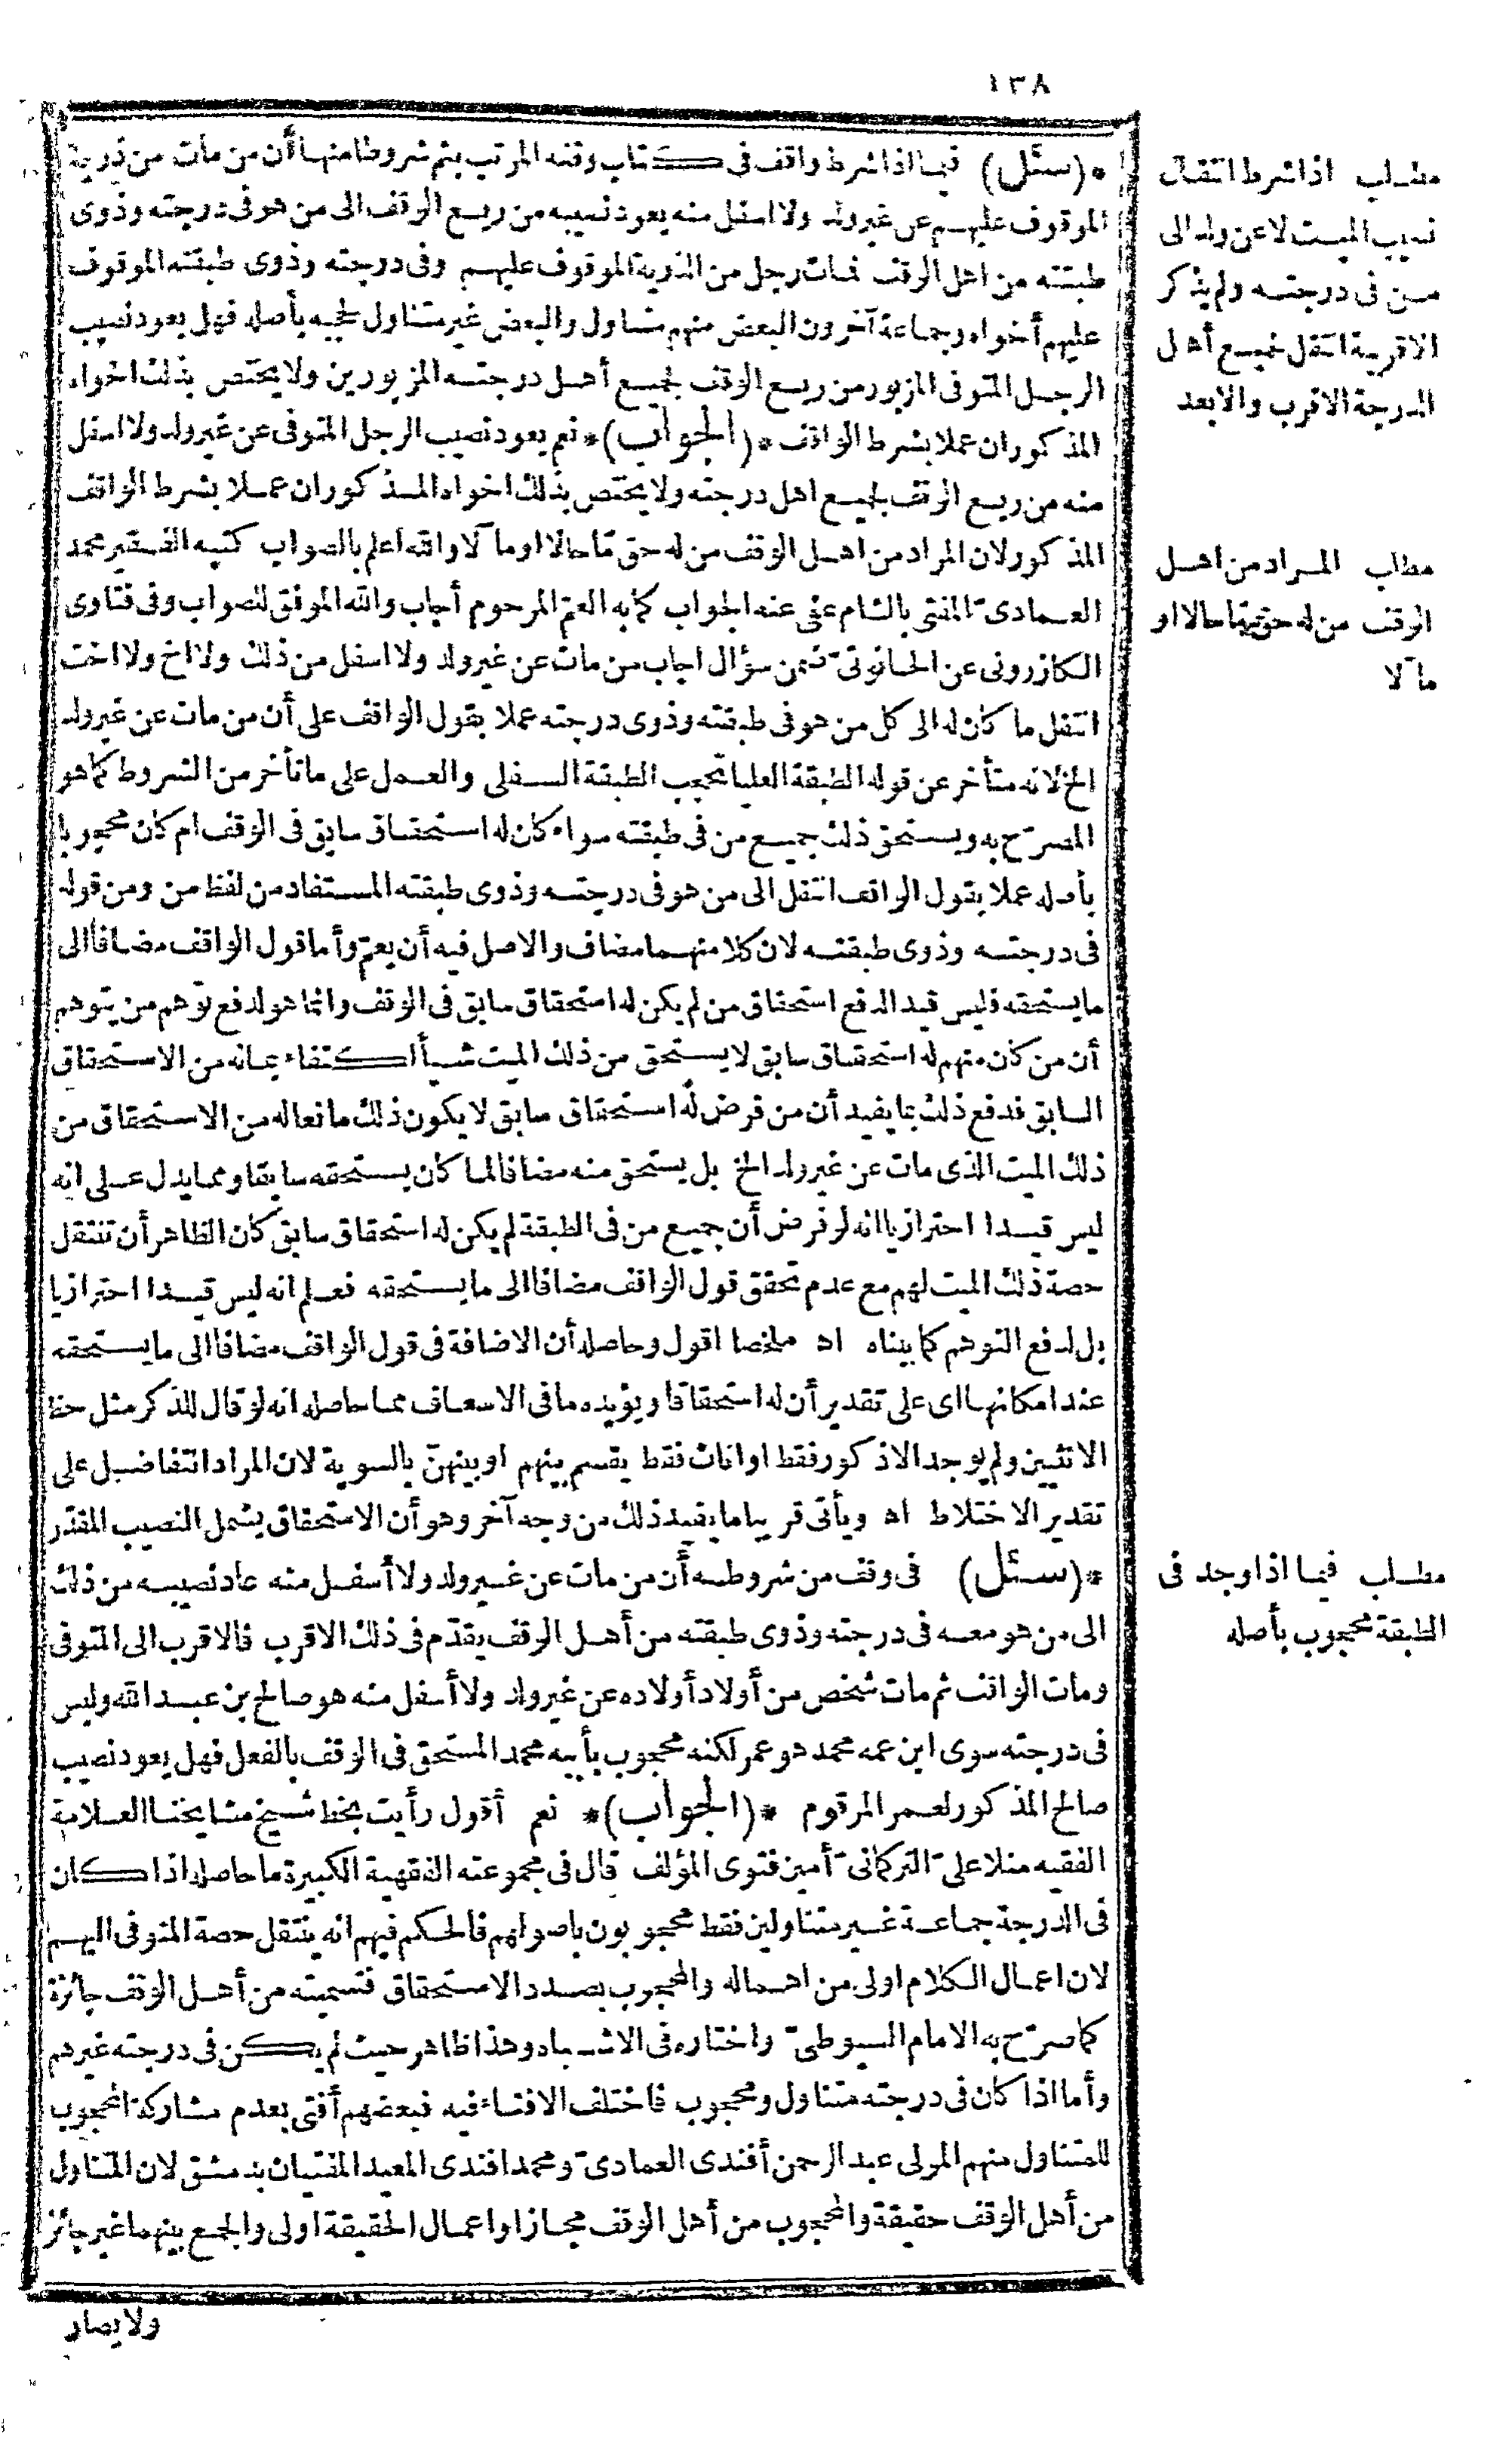 ١٣٨
*(سئل) فيما اذا شرط واقف فى كتاب وقفه المرتب بثم شروطا منها أن من مات من ذرية
الموقوف عليهم عن غير ولد ولا اسفل منه يعود نصيبه من ريع الوقف الى من هو فى درجته وذوى
طبقته من اهل الوقف فمات رجل من الذرية الموقوف عليهم وفى درجته وذوى طبقته الموقوف
عليهم أخواه وجماعة آخرون البعض منهم متناول والبعض غير متناول لحجبه بأصله فهل يعود نصيب
الرجل المتوفى المزبور من ريع الوقف لجميع أهل درجته المزبورين ولا يختص بذلك اخواه
المذكوران عملا بشرط الواقف *(الجواب)* نعم يعود نصيب الرجل المتوفى عن غير ولد ولا اسفل
منه من ريع الوقف لجميع اهل درجته ولا يختص بذلك اخواه المذكوران عملا بشرط الواقف
المذكور لان المراد من اهل الوقف من له حق ما حالا او مآلا والله اعلم بالصواب كتبه الفقير محمد
العمادى المفتى بالشام عفى عنه الجواب كما به العم المرحوم أجاب والله الموفق للصواب وفى فتاوى
الكازرونى عن الحانوتى ضمن سؤال اجاب من مات عن غير ولد ولا اسفل من ذلك ولا اخ ولا اخت
انتقل ما كان له الى كل من هو فى طبقته وذوى درجته عملا بقول الواقف على أن من مات عن غير ولد
الخ لانه متأخر عن قوله الطبقة العليا تحجب الطبقة السفلى والعمل على ما تأخر من الشروط كما هو
المصرح به ويستحق ذلك جميع من فى طبقته سواء كان له استحقاق سابق فى الوقف ام كان محجوبا
بأصله عملا بقول الواقف انتقل الى من هو فى درجته وذوى طبقته المستفاد من لفظ من ومن قوله
فى درجته وذوى طبقته لان كلا منهما مضاف والاصل فيه أن يعم وأما قول الواقف مضافا الى
ما يستحقه فليس قيد الدفع استحقاق من لم يكن له استحقاق سابق فى الوقف وانما هو لدفع توهم من يتوهم
أن من كان منهم له استحقاق سابق لا يستحق من ذلك الميت شيأ اكتفاء بماله من الاستحقاق
السابق فدفع ذلك بما يفيد أن من فرض له استحقاق سابق لا يكون ذلك مانعا له من الاستحقاق من
ذلك الميت الذى مات عن غير ولد الخ بل يستحق منه مضافا لما كان يستحقه سابقا ومما يدل على انه
ليس قيدا احترازيا انه لو فرض أن جميع من فى الطبقة لم يكن له استحقاق سابق كان الظاهر أن تنتقل
حصة ذلك الميت لهم مع عدم تحقق قول الواقف مضافا الى ما يستحقه فعلم انه ليس قيدا احترازيا
بل لدفع التوهم كما بيناه اه ملخصا اقول وحاصله أن الاضافة فى قول الواقف مضافا الى ما يستحقه
عند امكانها اى على تقدير أن له استحقاقا ويؤيده ما فى الاسعاف مما حاصله انه لو قال للذكر مثل حظ
الانثيين ولم يوجد الا ذكور فقط او اناث فقط يقسم بينهم او بينهن بالسوية لان المراد التفاضل على
تقدير الاختلاط اه ويأتى قريبا ما يفيد ذلك من وجه آخر وهو أن الاستحقاق يشمل النصيب المقدر
*(سئل) فى وقف من شروطه أن من مات عن غير ولد ولا أسفل منه عاد نصيبه من ذلك
الى من هو معه فى درجته وذوى طبقته من أهل الوقف يقدم فى ذلك الاقرب فالاقرب الى المتوفى
ومات الواقف ثم مات شخص من أولاد أولاده عن غير ولد ولا أسفل منه هو صالح بن عبد الله وليس
فى درجته سوى ابن عمه محمد هو عمر لكنه محجوب بأبيه محمد المستحق فى الوقف بالفعل فهل يعود نصيب
صالح المذكور لعمر المرقوم *(الجواب)* نعم أقول رأيت بخط شيخ مشايخنا العلامة
الفقيه منلا على التركمانى أمين فتوى المؤلف قال فى مجموعته الفقهية الكبيرة ما حاصله اذا كان
فى الدرجة جماعة غير متناولين فقط محجوبون باصولهم فالحكم فيهم انه ينتقل حصة المتوفى اليهم
لان اعمال الكلام اولى من اهماله والمحجوب بصدد الاستحقاق فتسميته من أهل الوقف جائزة
كما صرح به الامام السيوطى واختاره فى الاشباه وهذا ظاهر حيث لم يكن فى درجته غيرهم
وأما اذا كان فى درجته متناول ومحجوب فاختلف الافتاء فيه فبعضهم أفتى بعدم مشاركة المحجوب
للمتناول منهم المولى عبد الرحمن أفندى العمادى ومحمد افندى المعيد المفتيان بدمشق لان المتناول
من أهل الوقف حقيقة والمحجوب من أهل الوقف مجازا واعمال الحقيقة اولى والجمع بينهما غير جائز
ولا يصار
مطلب اذا شرط انتقال
نصيب الميت لا عن ولد الى
من فى درجته ولم يذكر
الاقربية انتقل لجميع أهل
الدرجة الاقرب والابعد
مطلب المراد من اهل
الوقف من له حق حالا او
مآلا
مطلب فيما اذا وجد فى
الطبقة محجوب بأصله